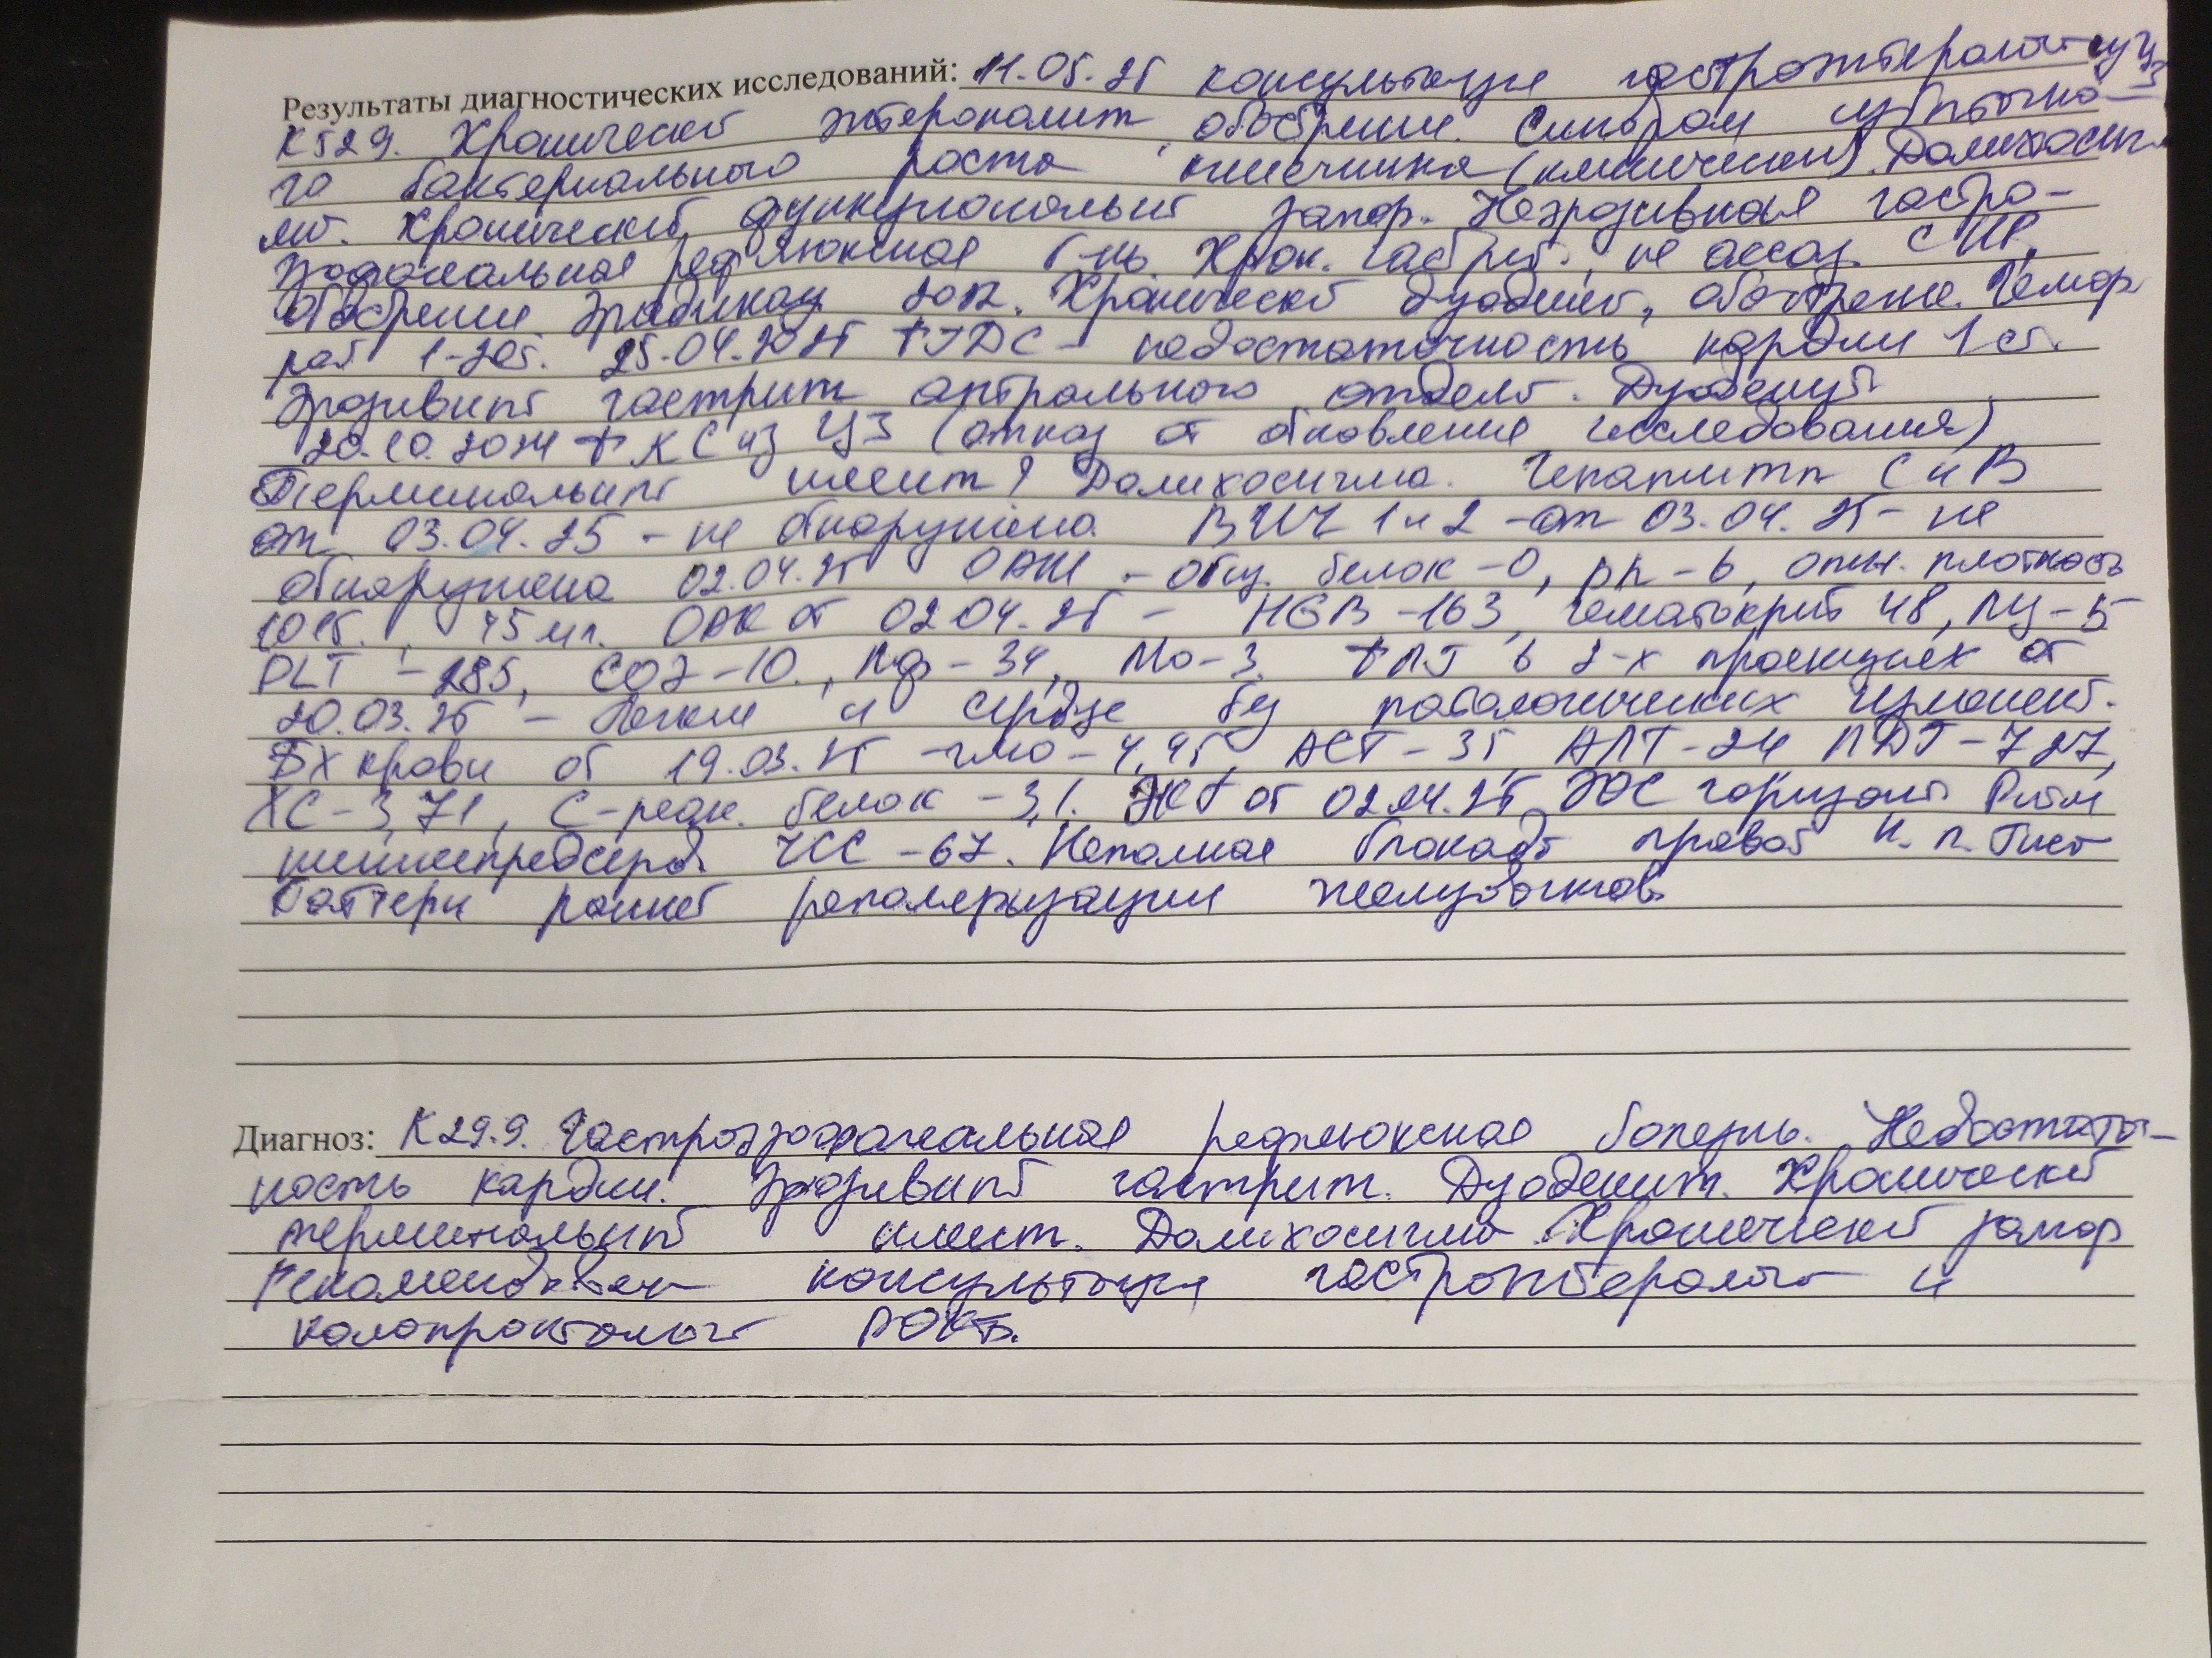 Результаты диагностических исследований: 11.05.25 консультация гастроэнтеролога ЦЗ
К 52.9. Хронический энтероколит, обострение. Синдром избыточно-
го бактериального роста кишечника (клинически). Долихосиг-
ма. Хронический функциональный запор. Неэрозивная гастро-
эзофагеальная рефлюксная б-нь. Хрон. гастрит, не ассоц. с HP,
обострение. Эрадикац 2012. Хронический дуоденит, обострение. Гемор
рой 1-2 ст. 25.04.2025 ФГДС - недостаточность кардии 1 ст.
Эрозивный гастрит антрального отдела. Дуоденит
20.10.2024 ФКС из ЦЗ (отказ от обновления исследования)
Терминальный илеит? Долихосигма. Гепатиты С и В
от 03.04.25 - не обнаружено. ВИЧ 1 и 2 - от 03.04.25 - не
обнаружено 02.04.25 ОАМ - общ. белок - 0, ph - 6, отн. плотность
1015, 75 мл. ОАК от 02.04.25 - HGB - 163, гематокрит 48, Лц - 5
PLT - 285, СОЭ - 10, Лф - 34, Мо - 3. ФЛГ в 2-х проекциях от
20.03.25 - Легкие и сердце без патологических изменений.
БХ крови от 19.03.25 - глю - 4,95, АСТ - 35, АЛТ - 24 ЛДГ - 727,
ХС - 3,71, С-реак. белок - 3,1. ЭКГ от 02.04.25 ЭОС горизонт. Ритм
нижнепредсерд. ЧСС - 67. Неполная блокада правой н. п. Гиса
Паттерн ранней реполяризации желудочков.
Диагноз: К 29.9. Гастроэзофагеальная рефлюксная болезнь. Недостаточ-
ность кардии. Эрозивный гастрит. Дуоденит. Хронический
терминальный илеит. Долихосигма. Хронический запор
Рекомендован консультация гастроэнтеролога и
колопроктолога РОКБ.